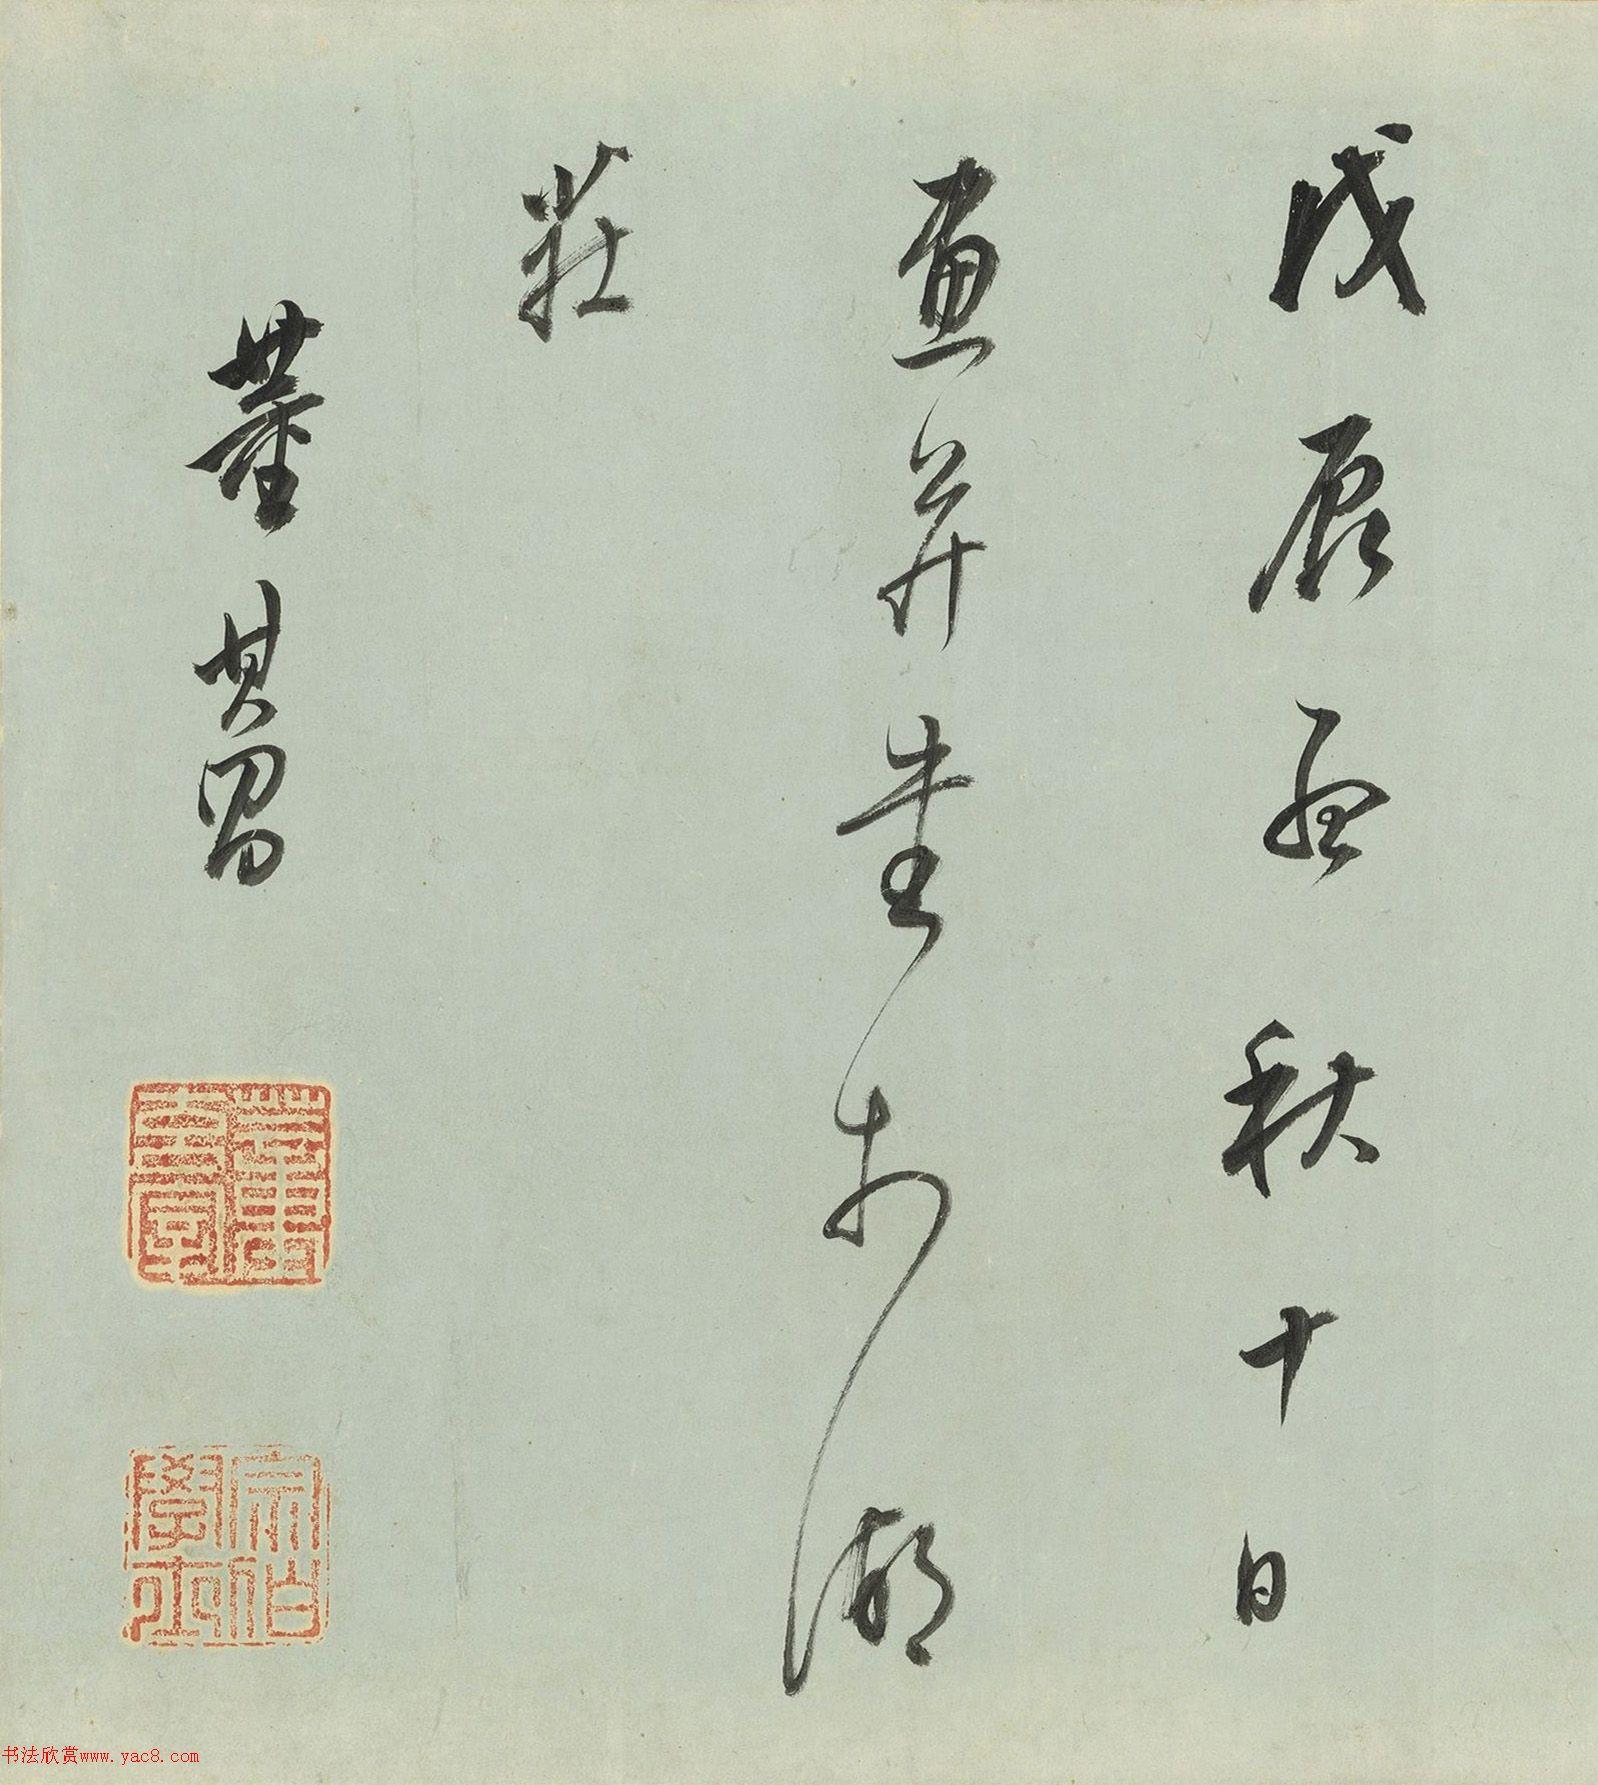 戊辰孟秋十日
画并書於湖
莊
董其昌
董其昌印
宗伯學士
书法欣赏www.yac8.com